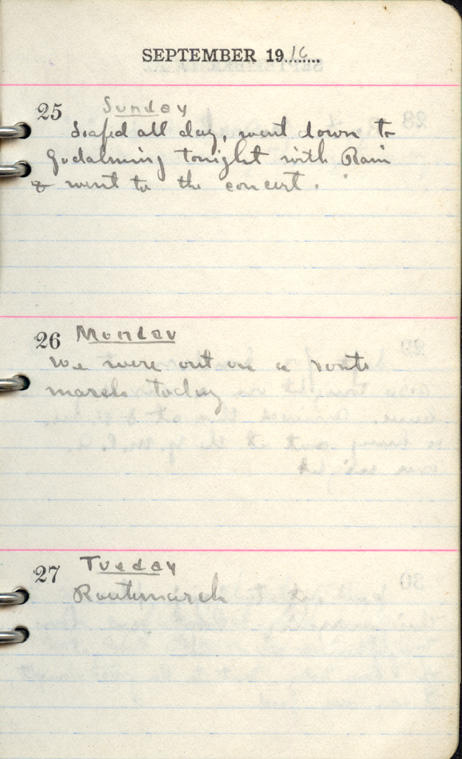 SEPTEMBER 1916
25 Sunday
Loafed all day, went down to
Godalming tonight with Rain
& went to the concert.
26 Monday
We were out on a route
march today
27 Tueday
Routemarch